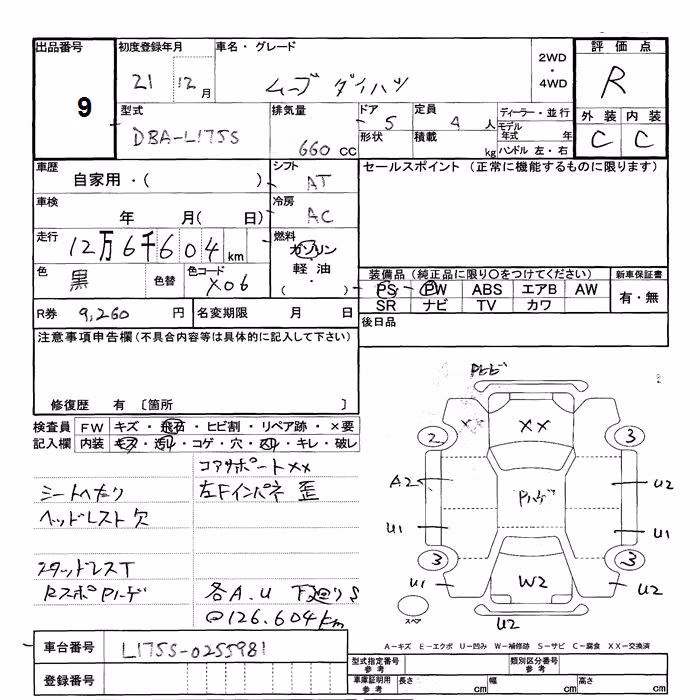 出品番号 初度登録年月 車名・グレード 評価点
9 21 12月 ムーブ ダイハツ 2WD ・ 4WD R
型式 排気量 ドア 定員 ディーラー・並行 外装 内装
DBA-L175S 660cc 5 4人 モデル年式 年 C C
形状 積載 kg ハンドル 左・右
車歴 シフト セールスポイント (正常に機能するものに限ります)
自家用・( ) AT
車検 冷房
年 月( 日) AC
走行 燃料
12万6千604km ガソリン
色 色替 色コード 軽油
黒 X06 ・ ( )
装備品 (純正品に限り○をつけてください) 新車保証書
PS PW ABS エアB AW 有・無
SR ナビ TV カワ
R券 9,260円 名変期限 月 日
後日品
注意事項申告欄 (不具合内容等は具体的に記入して下さい)
修復歴 有 [箇所 ]
検査員 FW キズ・飛石・ヒビ割・リペア跡・×要
記入欄 内装 キズ・汚れ・コゲ・穴・スレ・キレ・破レ
コアサポートXX
シートヘタリ 左Fインパネ 歪
ヘッドレスト欠
スタッドレスT
RスポPハゲ 各A.U 下廻りS
@126.604km
Pトビ
XX XX
2 3
A2 Pハゲ U2
U1 U1
3 3
U1 W2 U2
スペア U2
A-キズ E-エクボ U-凹み W-補修跡 S-サビ C-腐食 XX-交換済
車台番号 L175S-0255981
登録番号
型式指定番号 参考 類別区分番号 参考
車庫証明用 参考 長さ cm 幅 cm 高さ cm